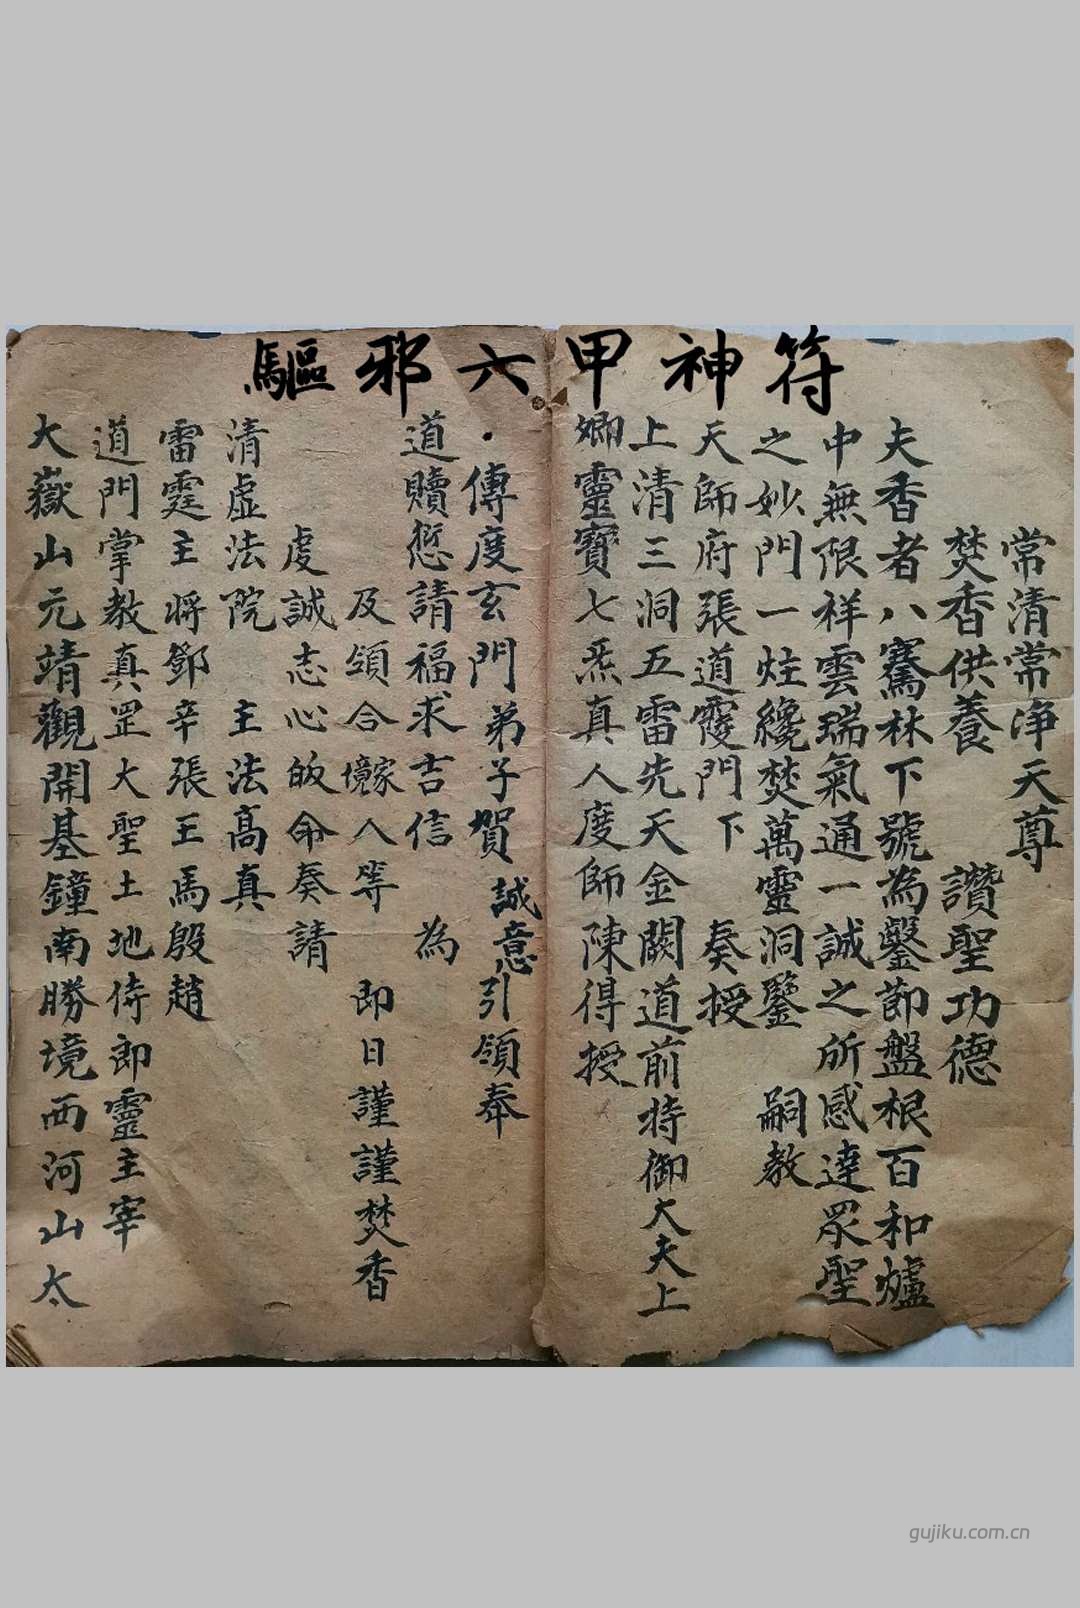 驅邪六甲神符
常清常淨天尊
焚香供養 讚聖功德
夫香者八騫林下號為鑿節盤根百和爐
中無限祥雲瑞氣通一誠之所感達眾聖
之妙門一炷纔焚萬靈洞鑒 嗣教
天師府張道霞門下 奏授
上清三洞五雷先天金闕道前特御大夫上
卿靈寶七炁真人度師陳得授
傳度玄門弟子賀誠意引領奉
道贖愆請福求吉信 為
及領合境家人等 即日謹謹焚香
虔誠志心皈命奏請
清虛法院 主法高真
雷霆主將鄧辛張王馬殷趙
道門掌教真罡大聖土地侍郎靈主宰
大嶽山元靖觀開基鐘南勝境西河山太
gujiku.com.cn